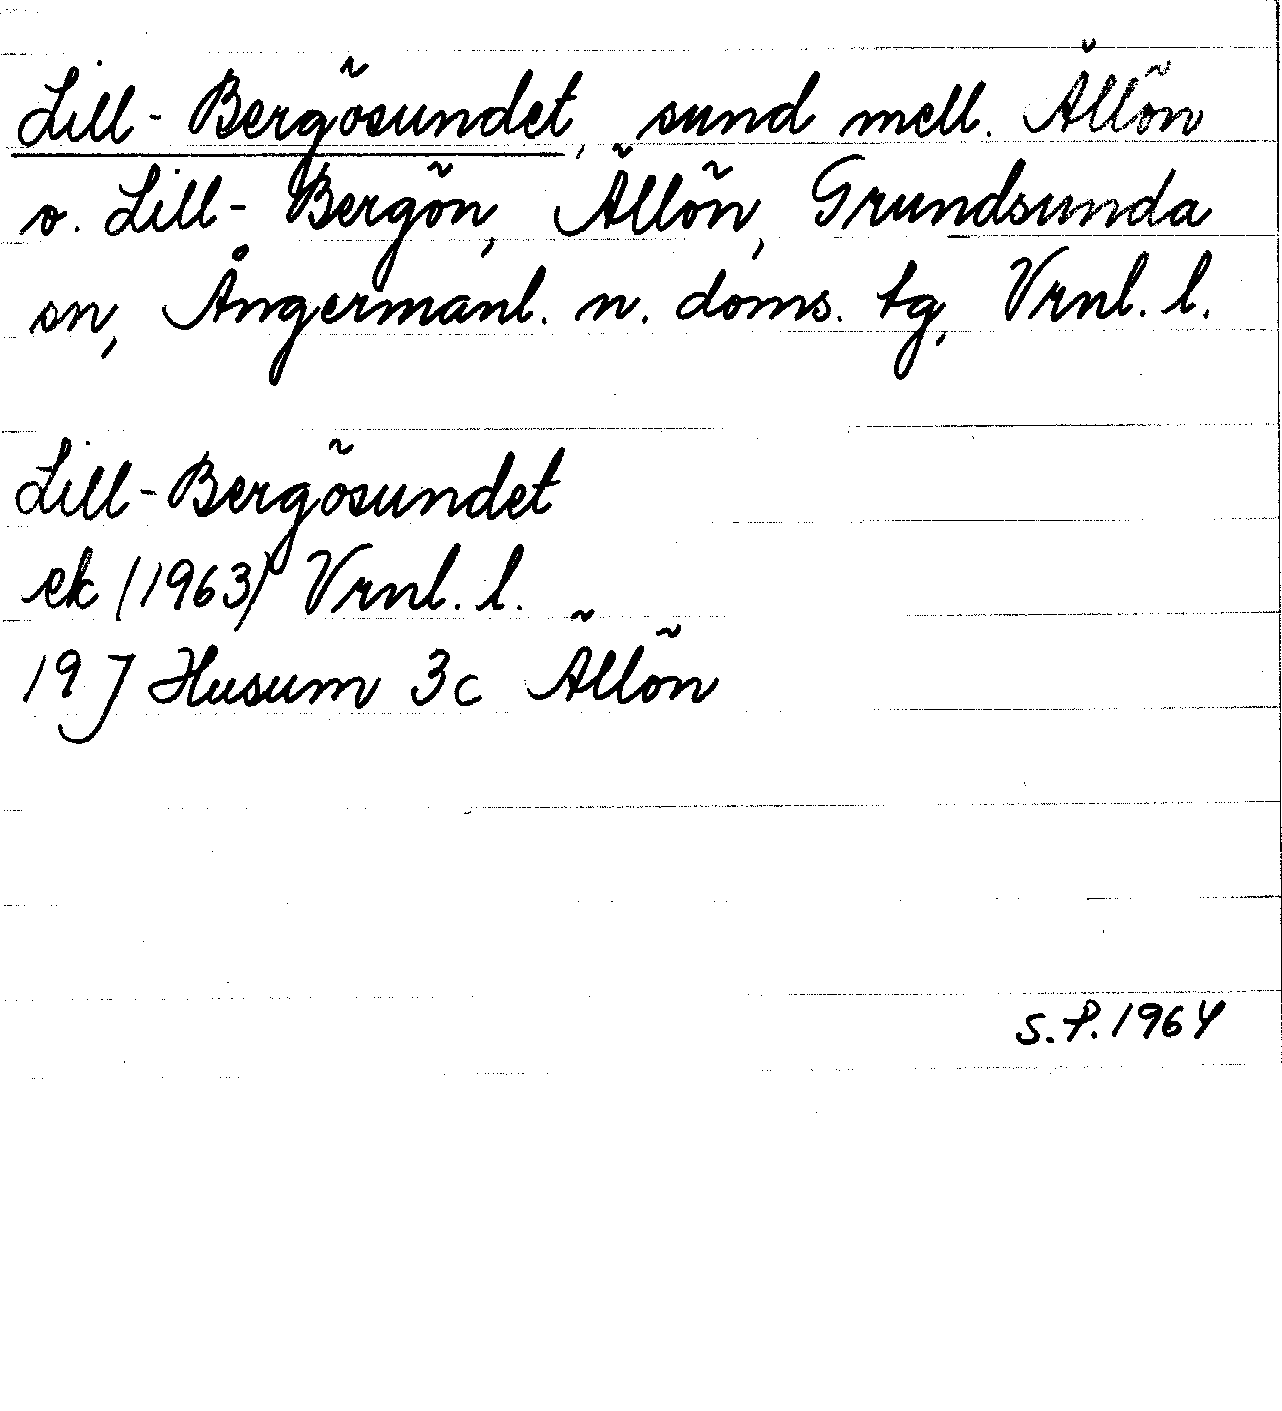 Lill-Bergösundet, sund mell. Ällön
o. Lill-Bergön, Ällön, Grundsunda
sn, Ångermanl. n. doms. tg, Vrnl. l.
Lill-Bergösundet
ek (1963) Vrnl. l.
19 J Husum 3c Ällön
S.P. 1964